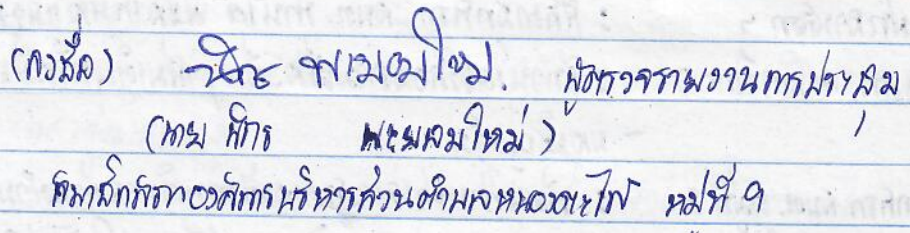 (ลงชื่อ) ผู้ตรวจรายงานการประชุม
(นาย พยอมใหม่)
สมาชิกสภาองค์การบริหารส่วนตำบลหนองตะไก้ หมู่ที่ ๑